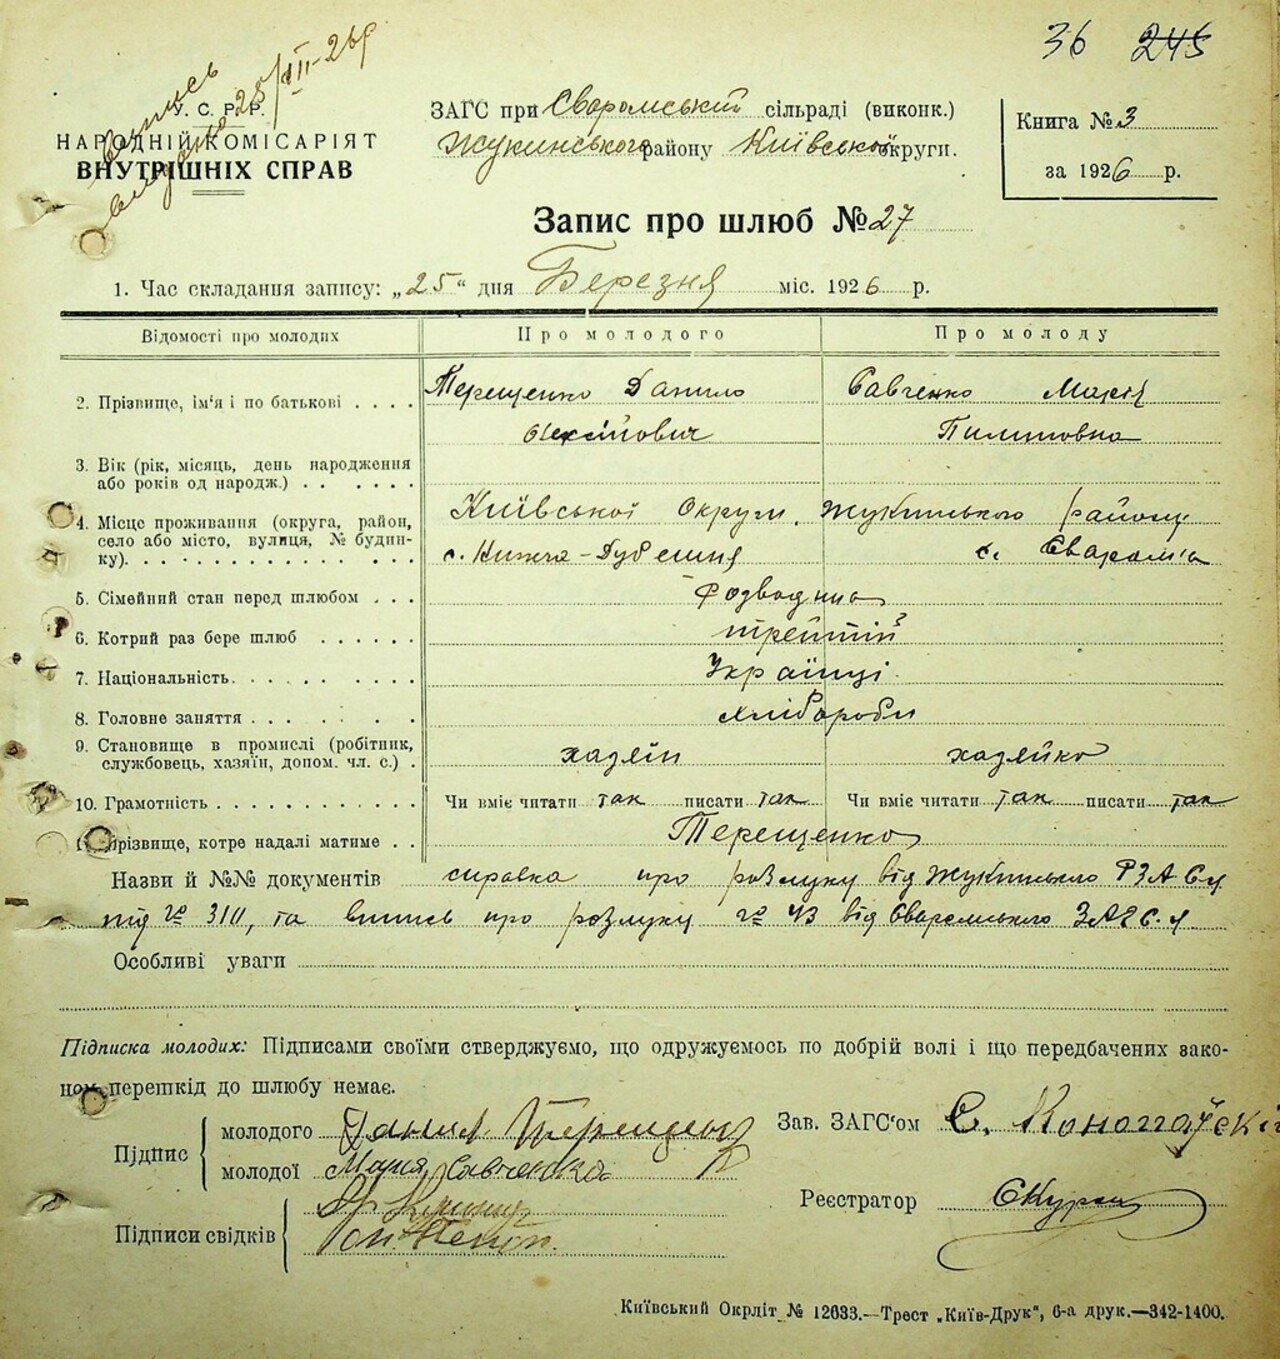 36 245
Випись
видано 25/III-26р
У. С. Р. Р.
НАРОДНІЙ КОМІСАРІЯТ
ВНУТРІШНІХ СПРАВ
ЗАГС при Сваромській сільраді (виконк.)
Жукинського району Київської округи.
Книга № 3
за 1926 р.
Запис про шлюб № 27
1. Час складання запису: „25" дня Березня міс. 1926 р.
Відомості про молодих Про молодого Про молоду
2. Прізвище, ім'я і по батькові . . . . Терещенко Данило Савченко Марія
Пилиповна
3. Вік (рік, місяць, день народження
або років од народж.) . . . . . .
4. Місце проживання (округа, район, Київської Округи, Жукинського району
село або місто, вулиця, № будин- с. Нижча-Дубешня с. Сваром'я
ку). . . . . . . . . . . . . . .
5. Сімейний стан перед шлюбом . . . Розводный
6. Котрий раз бере шлюб . . . . . . третій
7. Національність. . . . . . . . . Українці.
8. Головне заняття . . . . . . . . хлібороби
9. Становище в промислі (робітник, хазяін хазяйка
службовець, хазяїн, допом. чл. с.) .
10. Грамотність . . . . . . . . . . . Чи вміє читати так писати так Чи вміє читати так писати так
11. Прізвище, котре надалі матиме . . Терещенко
Назви й №№ документів справка про розлуку від Жукинського РЗАГСу
під № 310, та випись про розлуку № 43 від Сваромського ЗАГС.у.
Особливі уваги
Підписка молодих: Підписами своїми стверджуємо, що одружуємось по добрій волі і що передбачених зако-
ном перешкід до шлюбу немає.
Підпис молодого Данило Терещенко
молодої Марія Савченкова
Зав. ЗАГС'ом
Реєстратор
Підписи свідків
Київський Окрліт № 12633.—Трест „Київ-Друк", 6-а друк.—342-1400.